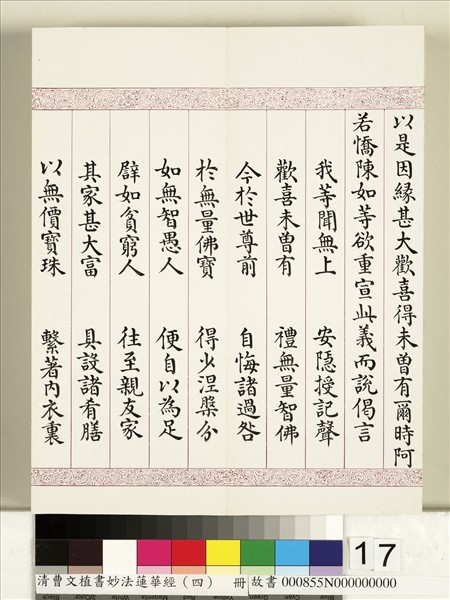 以是因緣甚大歡喜得未曾有爾時阿
若憍陳如等欲重宣此義而說偈言
我等聞無上 安隱授記聲
歡喜未曾有 禮無量智佛
今於世尊前 自悔諸過咎
於無量佛寶 得少涅槃分
如無智愚人 便自以為足
譬如貧窮人 往至親友家
其家甚大富 具設諸肴膳
以無價寶珠 繫著內衣裏
17
清曹文植書妙法蓮華經(四) 冊 故書 000855N000000000